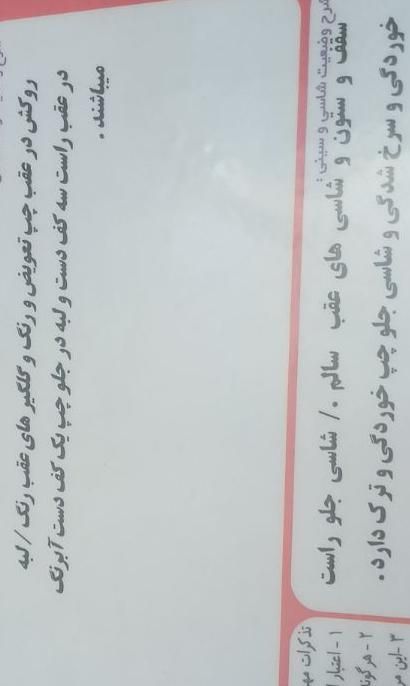 روکش در عقب چپ تعویض و رنگ و گلگیر های عقب رنگ / لبه
در عقب راست سه کف دست و لبه در جلو چپ یک کف دست آبرنگ
میباشند .
شرح وضعیت شاسی و سینی :
سقف و ستون و شاسی های عقب سالم ./ شاسی جلو راست
خوردگی و سرخ شدگی و شاسی جلو چپ خوردگی و ترک دارد .
تذکرات
۱- اعتبار
۲-
۳-این